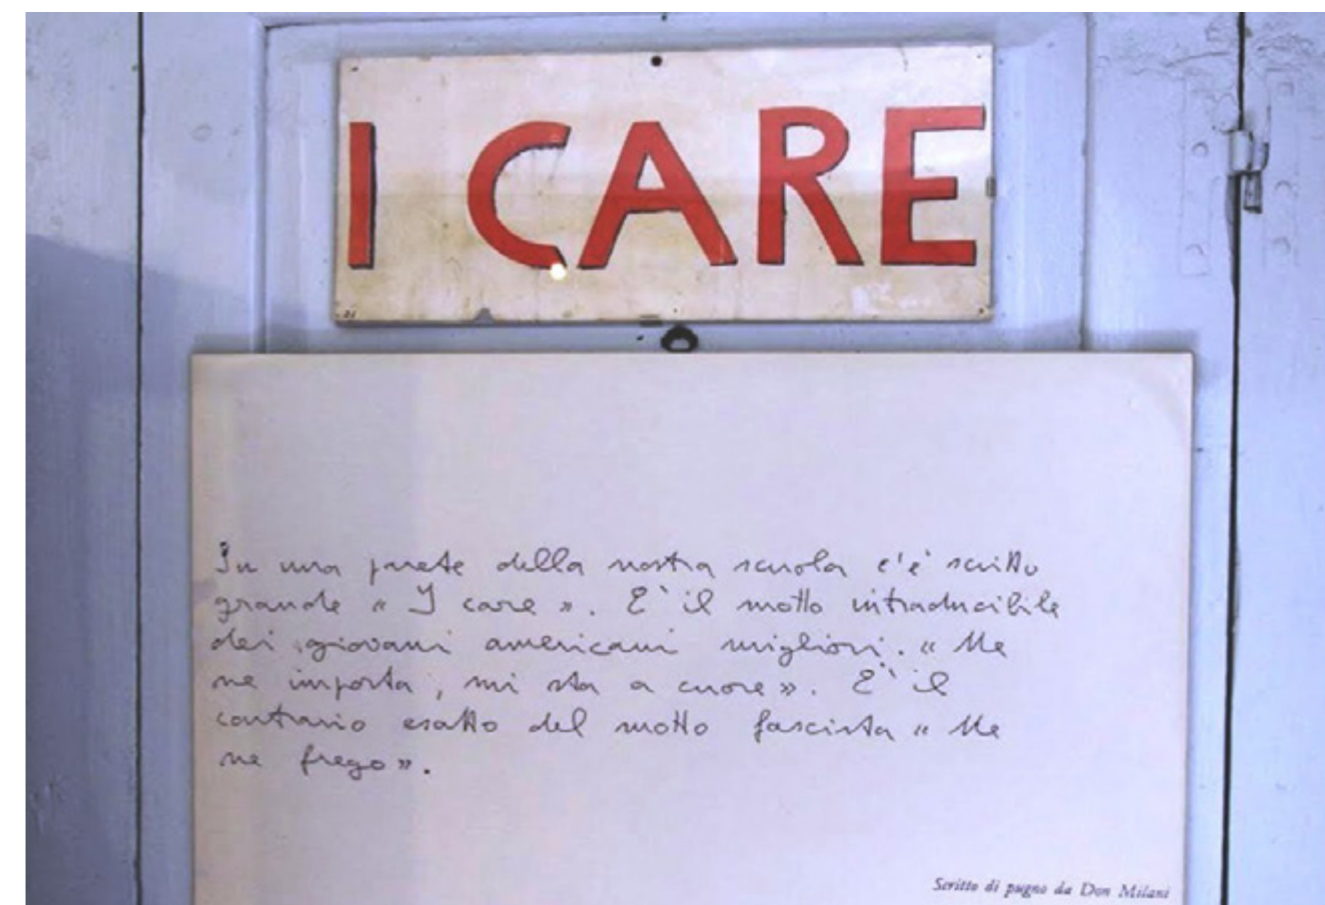 I CARE
In una parete della nostra scuola c'è scritto
grande « I care ». E` il motto intraducibile
dei giovani americani migliori. « Me
ne importa, mi sta a cuore ». E` il
contrario esatto del motto fascista « Me
ne frego ».
Scritto di pugno da Don Milani